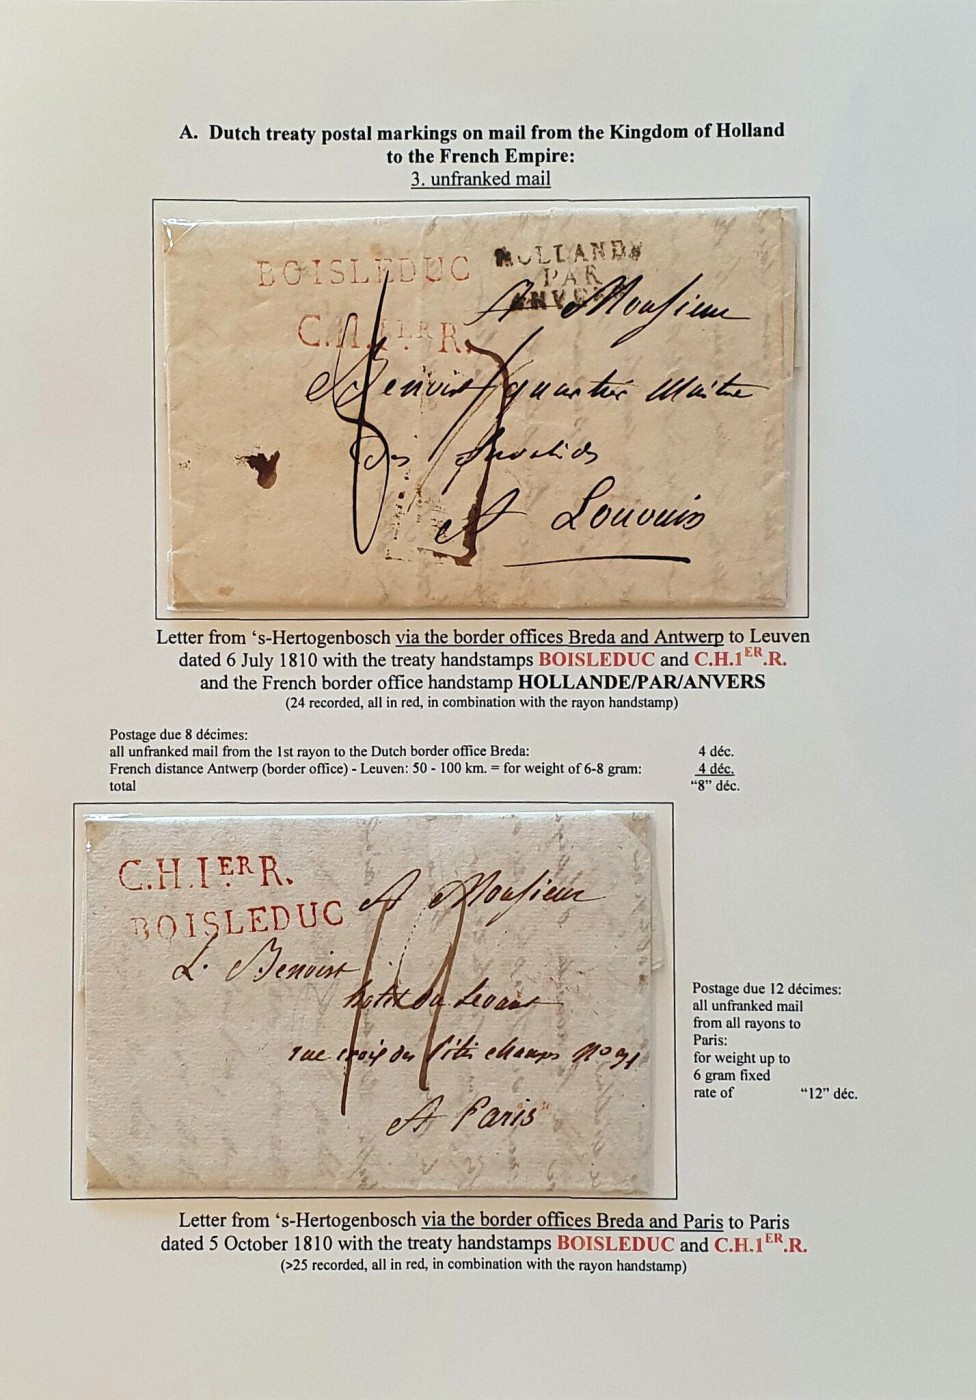 A. Dutch treaty postal markings on mail from the Kingdom of Holland
to the French Empire:
3. unfranked mail
BOISLEDUC
HOLLANDE
PAR
ANVERS
C.H.1ER R.
A Monsieur
Benoist quartier Maitre
des Invalides
A Louvain
Letter from ‘s-Hertogenbosch via the border offices Breda and Antwerp to Leuven
dated 6 July 1810 with the treaty handstamps BOISLEDUC and C.H.1ER.R.
and the French border office handstamp HOLLANDE/PAR/ANVERS
(24 recorded, all in red, in combination with the rayon handstamp)
Postage due 8 décimes:
all unfranked mail from the 1st rayon to the Dutch border office Breda: 4 déc.
French distance Antwerp (border office) - Leuven: 50 - 100 km. = for weight of 6-8 gram: 4 déc.
total “8” déc.
C.H.1ER R.
BOISLEDUC
A Monsieur
L. Benoist
hotel du Levant
rue croix des Petits champs No 31
A Paris
Postage due 12 décimes:
all unfranked mail
from all rayons to
Paris:
for weight up to
6 gram fixed
rate of “12” déc.
Letter from ‘s-Hertogenbosch via the border offices Breda and Paris to Paris
dated 5 October 1810 with the treaty handstamps BOISLEDUC and C.H.1ER.R.
(>25 recorded, all in red, in combination with the rayon handstamp)